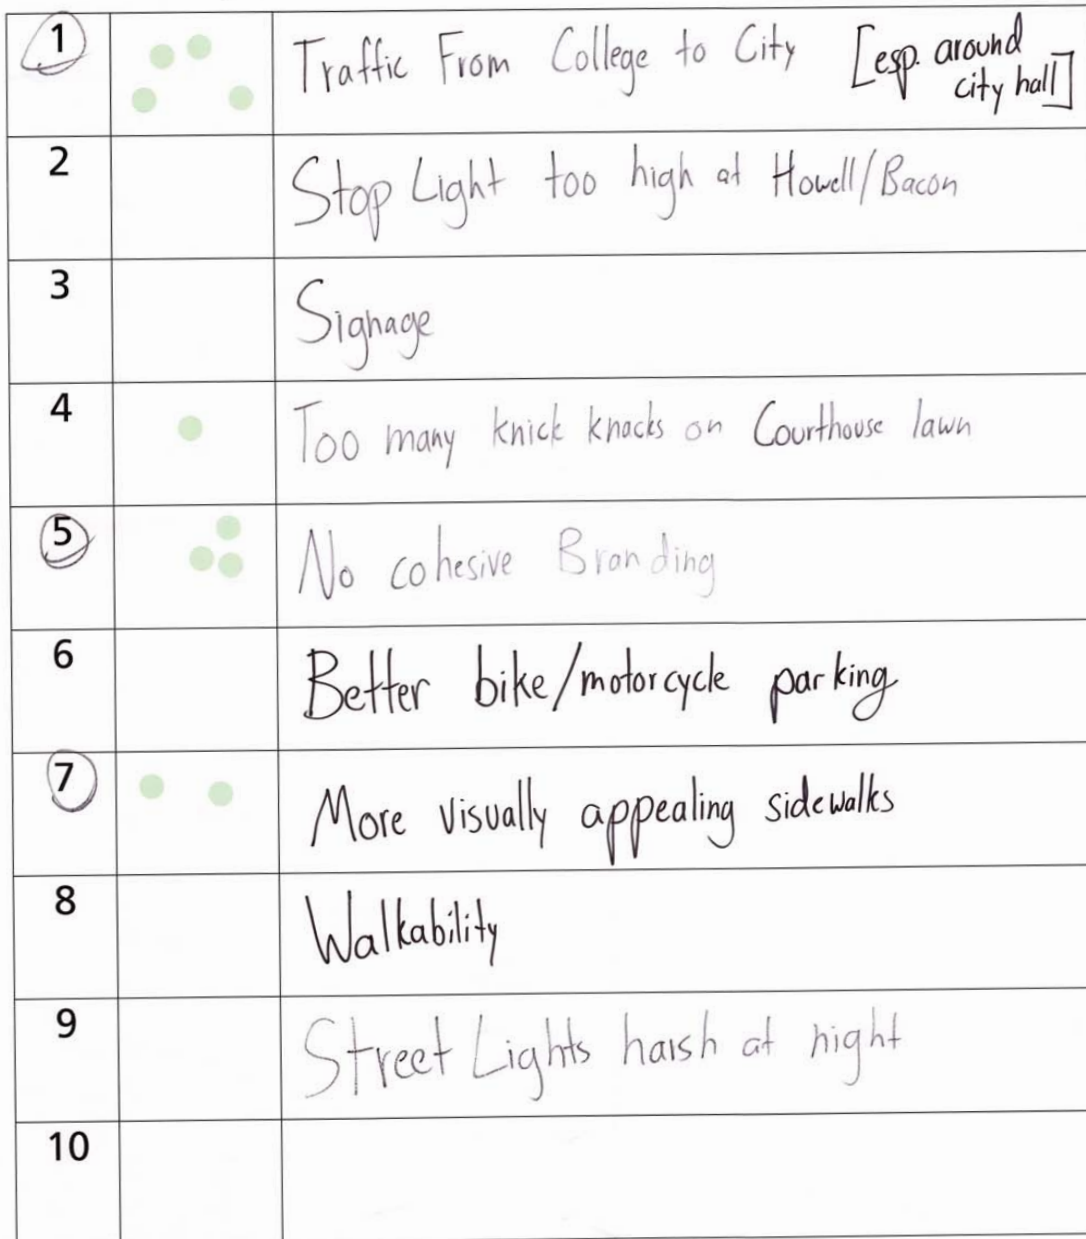 1 Traffic From College to City [esp. around
city hall]
2 Stop Light too high at Howell/Bacon
3 Signage
4 Too many knick knacks on Courthouse lawn
5 No cohesive Branding
6 Better bike/motorcycle parking
7 More visually appealing sidewalks
8 Walkability
9 Street Lights harsh at night
10